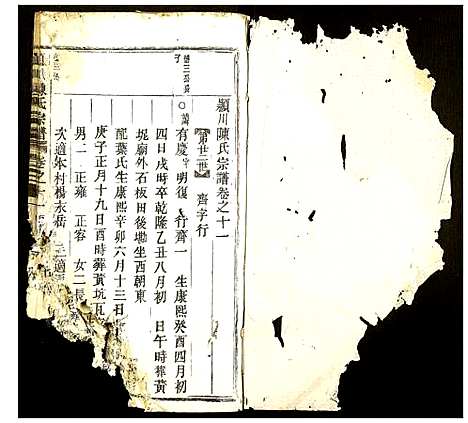 潁川陳氏宗譜卷之十一
第廿二世 齊字行
有慶 明復 行齊一 生康熙癸酉四月初
四日戌時卒乾隆乙丑八月初 日午時葬黃
坭廟外石板田後塝坐西朝東
配葉氏生康熙辛卯六月十三日
庚子正月十九日酉時葬黃坑瓦
男二 正雍 正容 女二長
次適本村楊永岳
陳氏宗譜 卷之十一